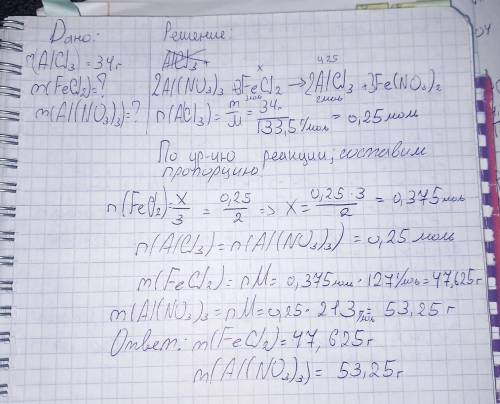 Дано:
m(AlCl₃)=34г
m(FeCl₂)=?
m(Al(NO₃)₃)=?
Решение:
AlCl₃+
x 0,25
2Al(NO₃)₃+3FeCl₂→2AlCl₃+3Fe(NO₃)₂
3моль 2моль
n(AlCl₃)=m/M=34г/133,5г/моль=0,25моль
По ур-ию реакции, составим
пропорцию:
n(FeCl₂)=x/3=0,25/2=>x=0,25·3/2=0,375моль
n(AlCl₃)=n(Al(NO₃)₃)=0,25 моль
m(FeCl₂)=nM=0,375моль·127г/моль=47,625г
m(Al(NO₃)₃=nM=0,25·213г/моль=53,25г
Ответ: m(FeCl₂)=47,625г
m(Al(NO₃)₃)=53,25г